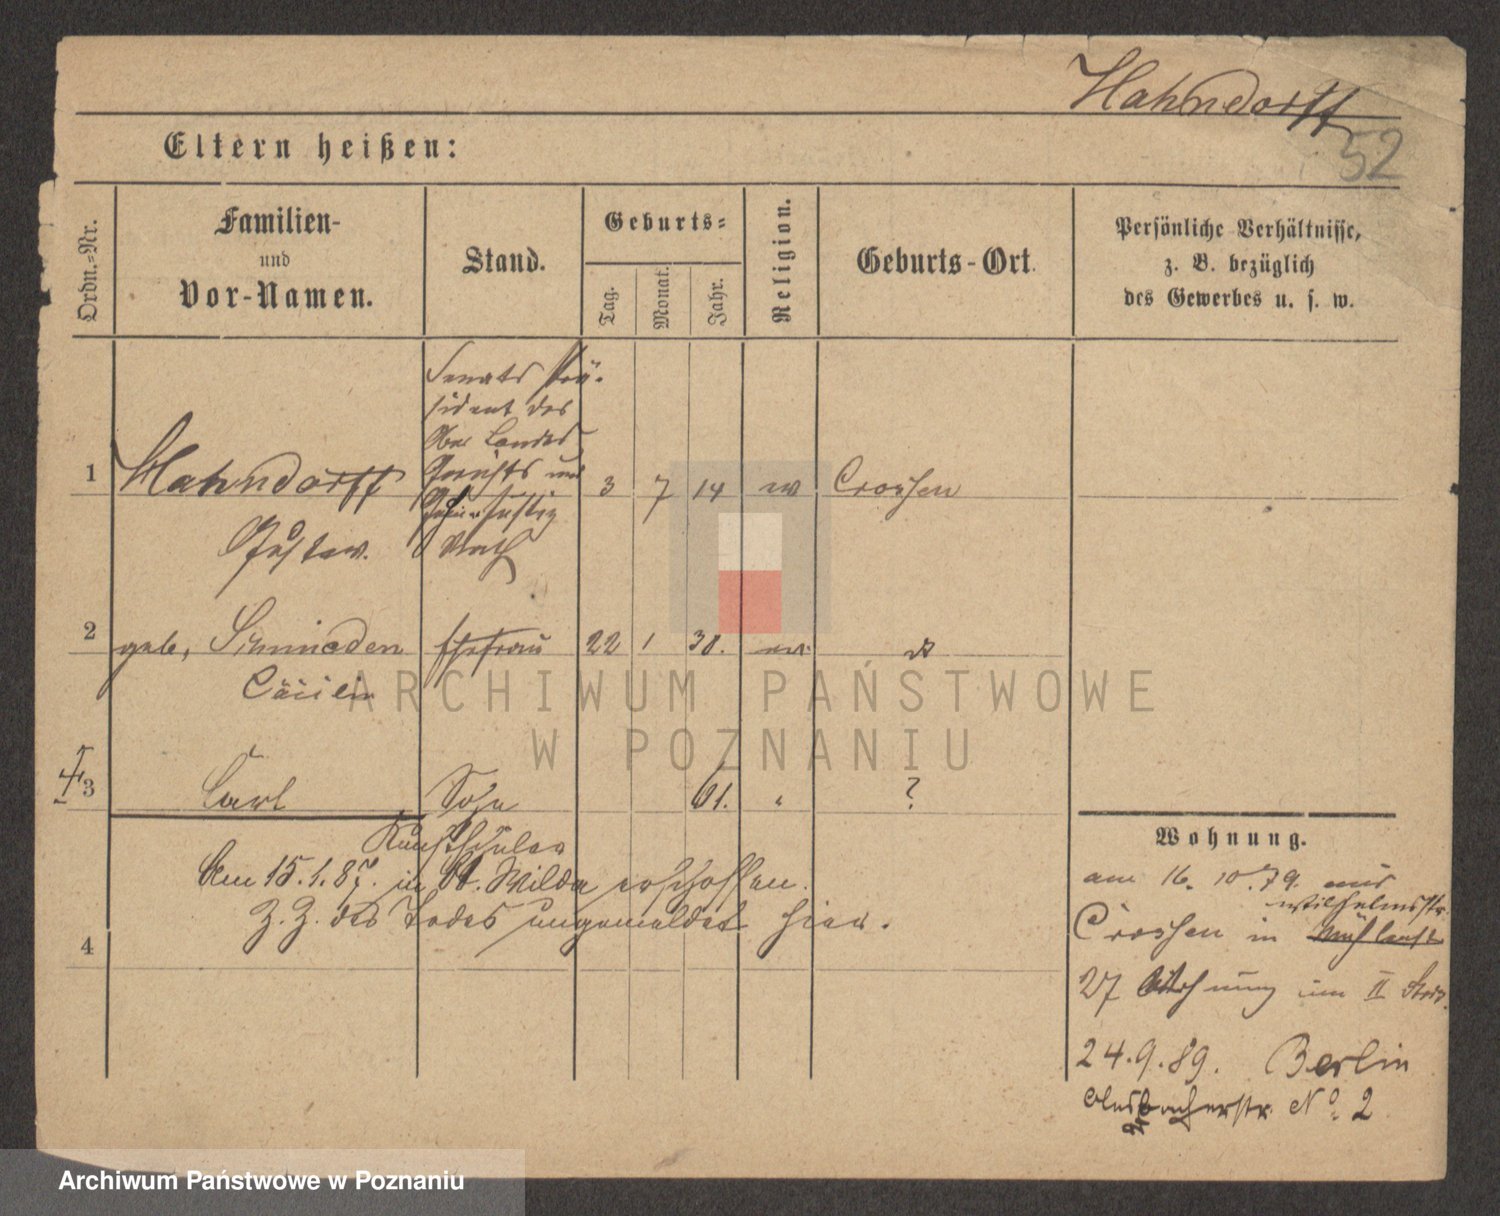 Hahndorff
52
Eltern heißen:
Ordn.-Nr.
Familien-
und
Vor-Namen.
Stand.
Geburts-
Tag.
Monat.
Jahr.
Religion.
Geburts-Ort.
Persönliche Verhältnisse,
z. B. bezüglich
des Gewerbes u. s. w.
Senats Prä-
sident des
Ober Landes
Gerichts und
1 Hahndorff 3 7 14 ev Crossen
Geheimer Justiz
Gustav. Rath
2 geb. Schmieden Ehefrau 22 1 30. ev.
Cäcilie
3 Carl Sohn 61. " ?
Kunstschüler
Am 15.1.87. in St. Wilda erschossen.
Z. Z. des Todes ungemeldet hier.
4
Wohnung.
am 16. 10. 79. aus
Wilhelmsstr.
Crossen in
27 Wohnung im II Stock.
24.9.89. Berlin
No. 2
ARCHIWUM PAŃSTWOWE
W POZNANIU
Archiwum Państwowe w Poznaniu